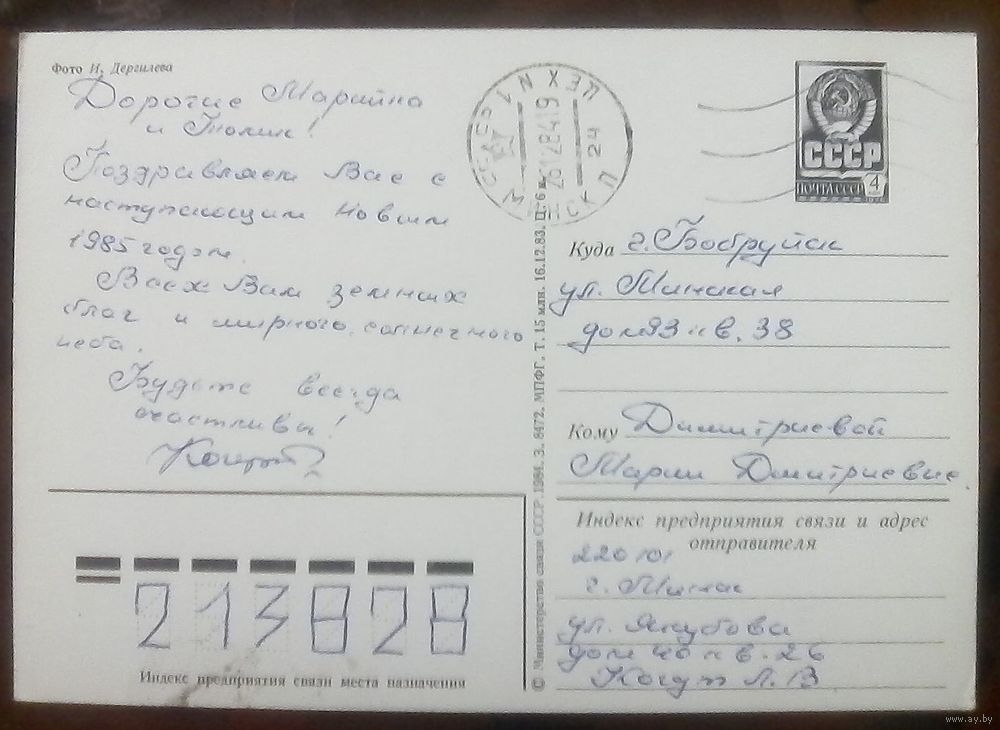 Фото И. Дергилева
Дорогие Марийка
и Толик!
Поздравляем Вас с
наступающим Новым
1985 годом.
Всех Вам земных
благ и мирного, солнечного
неба.
Будьте всегда
счастливы!
Когут
МИНСК П 24
ЦЕХ N 1
СССР
26128419
СССР
ПОЧТА СССР 4
Куда г. Бобруйск
ул. Минская
дом 93 кв. 38
Кому Димитриевой
Марии Дмитриевне.
Индекс предприятия связи и адрес
отправителя
220101
г. Минск
ул. Якубова
дом 40 кв. 26
Когут Л. В
213828
Индекс предприятия связи места назначения
© Министерство связи СССР. 1984. З. 8472. МПФГ. Т. 15 млн. 16.12.83. Ц. 6 к.
www.ay.by